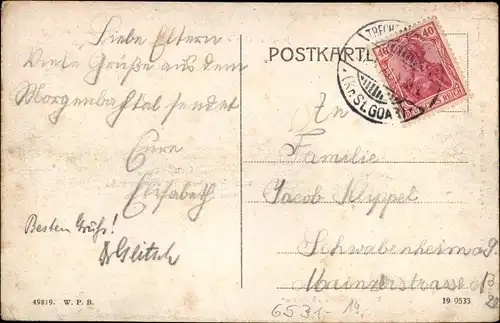 Liebe Eltern
Viele Grüße aus dem
Morgenbachtal sendet
Eure
Elisabeth
Besten Gruß!
49819. W. P. B.
POSTKARTE
TRECH
(KR. ST. GOAR)
40
DEUTSCHES REICH
An
Familie
Jacob Klyppel
Schwabenheim a. S.
Mainzerstrasse No
6531
19 9533